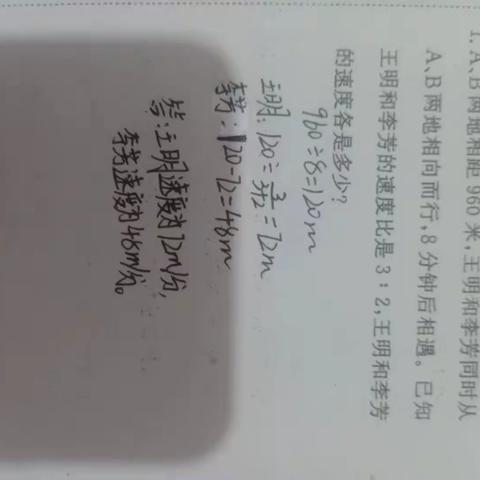 1. A、B两地相距960米,王明和李芳同时从
A、B两地相向而行,8分钟后相遇。已知
王明和李芳的速度比是3:2,王明和李芳
的速度各是多少?
960÷8=120m
王明:120÷3/3+2=72m
李芳:120-72=48m
答:王明速度为72m/分,
李芳速度为48m/分。